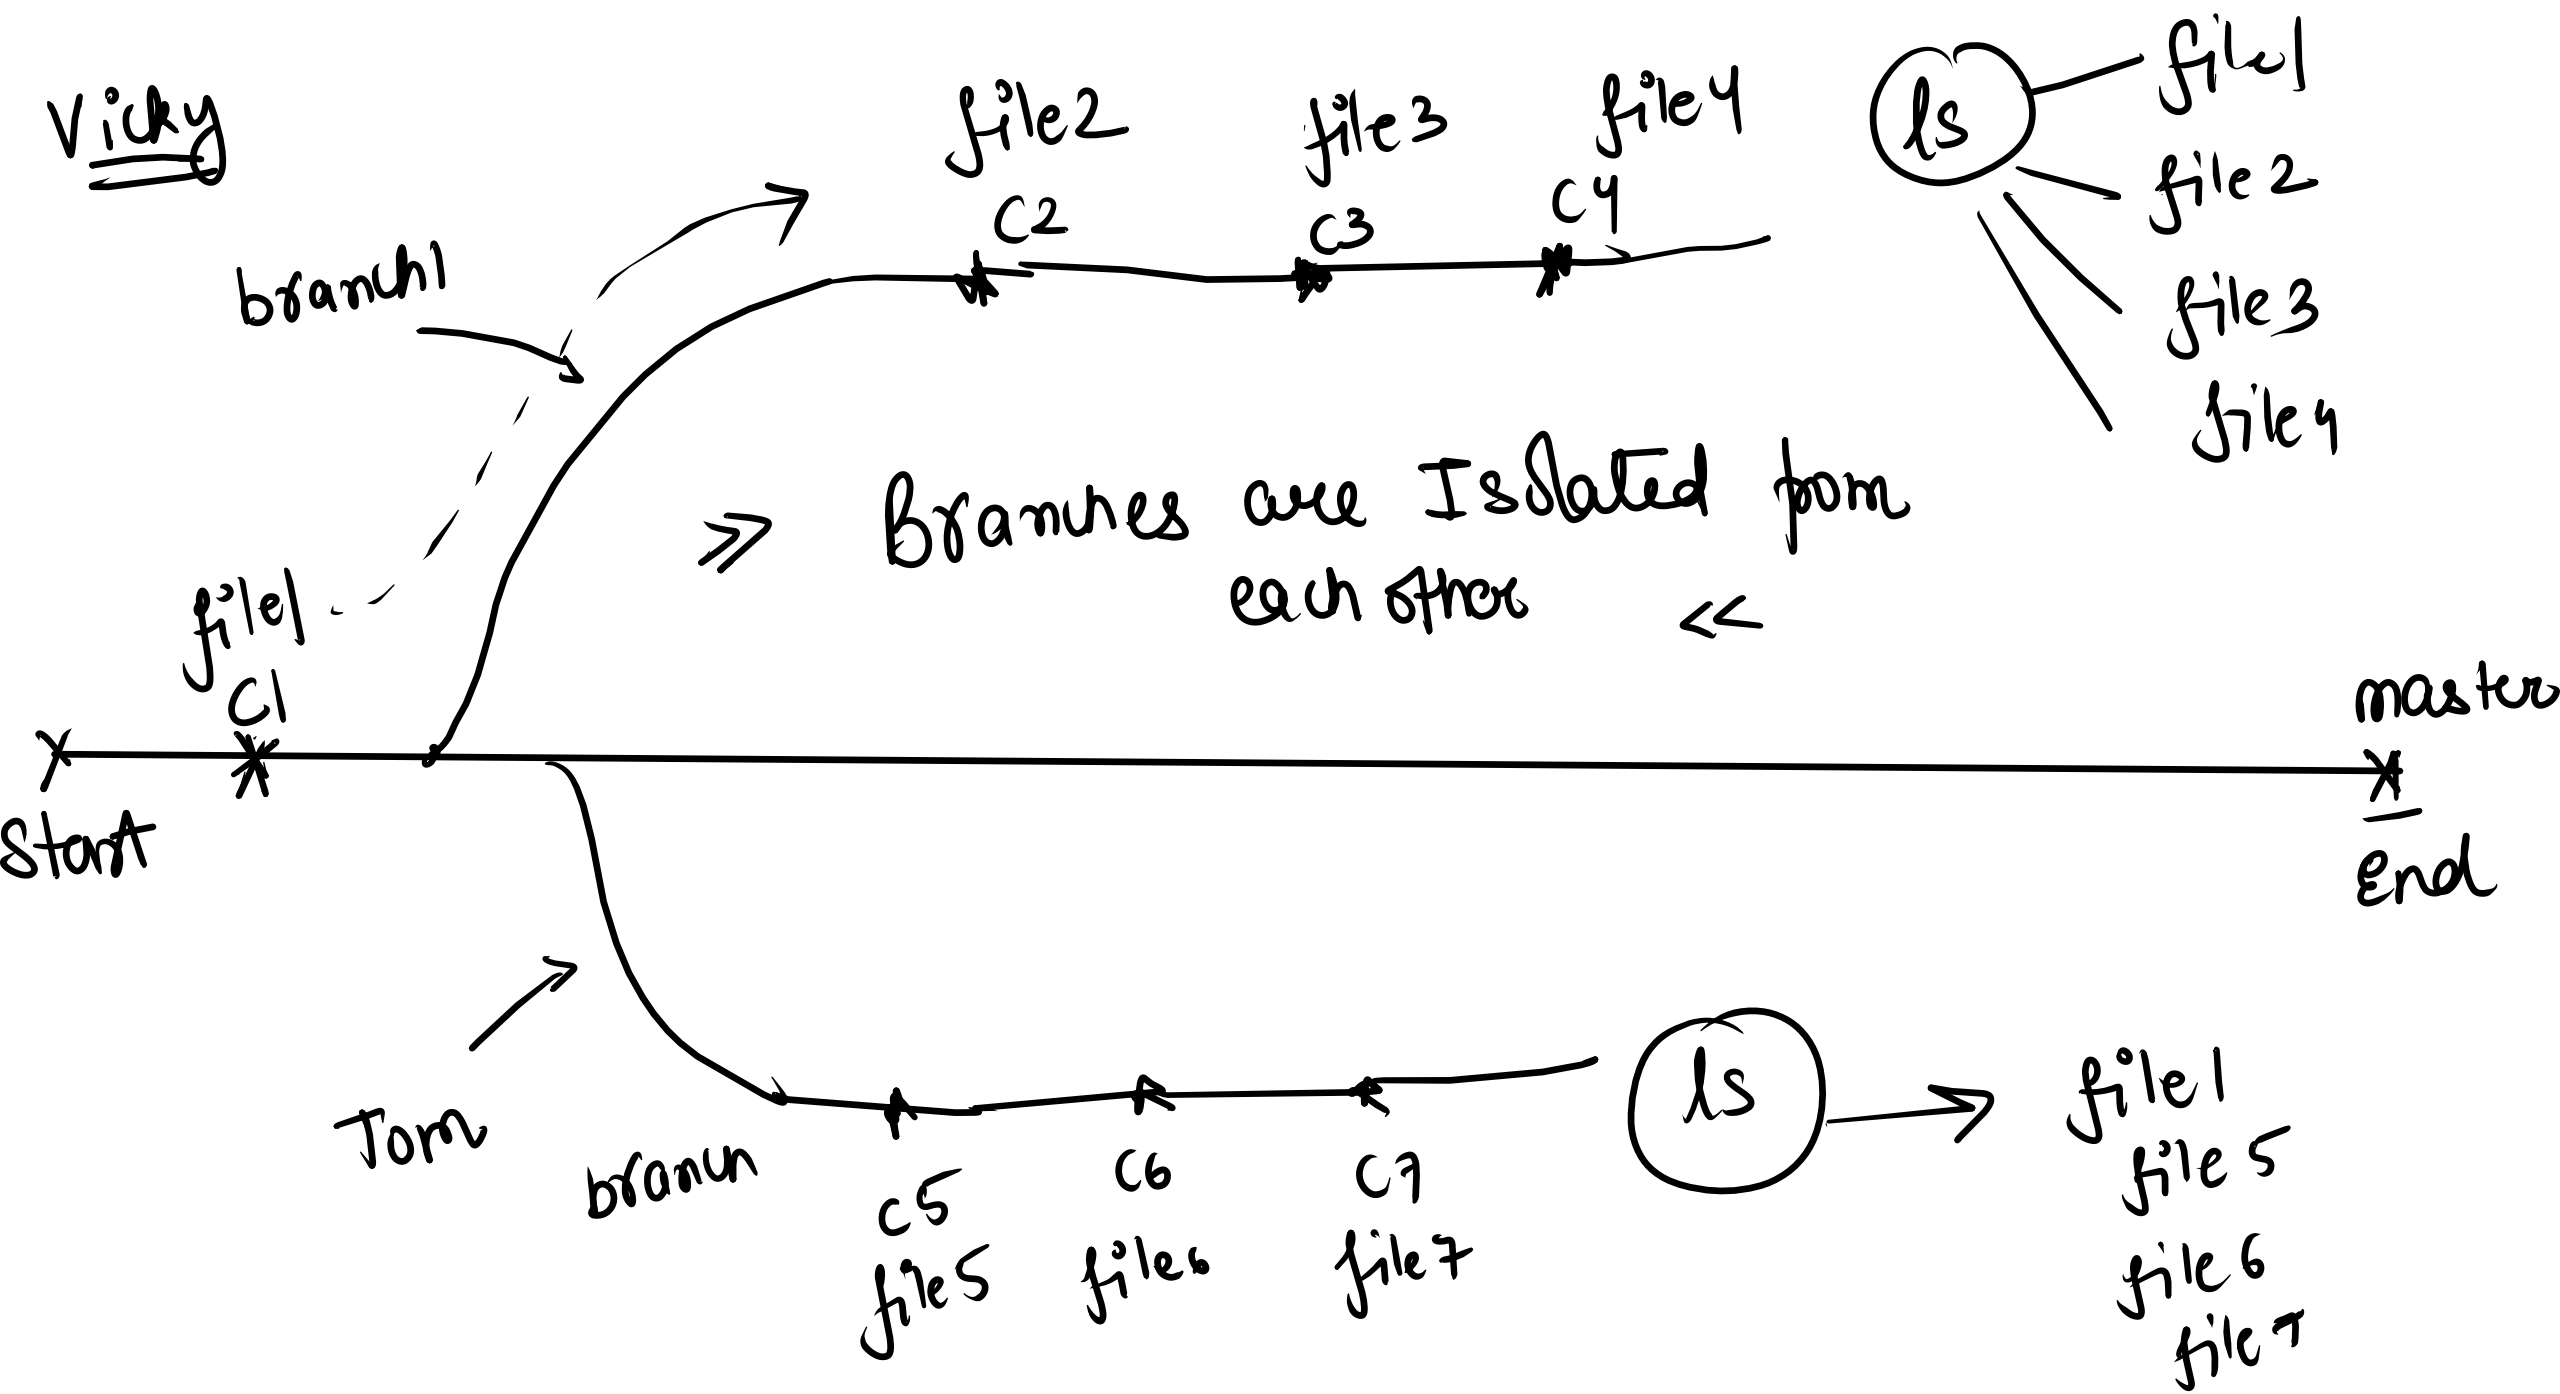 Vicky
file2
file3
file4
ls
file1
file2
file3
file4
branch1
C2
C3
C4
Branches are Isolated from
each other
file1
C1
master
Start
End
Tom
branch
C5
C6
C7
file5
file6
file7
ls
file1
file5
file6
file7